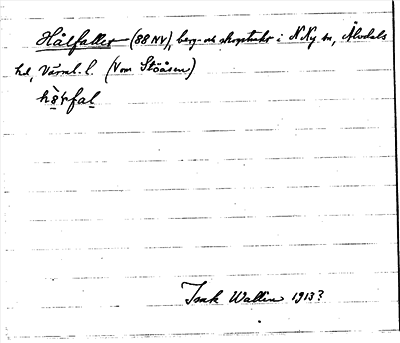 Hålfallet (88 NV), berg- och skogstrakt i N. Ny sn, Älvdals
hd, Värml. l. (Vom Stöåsen)
Isak Wallin 1913?